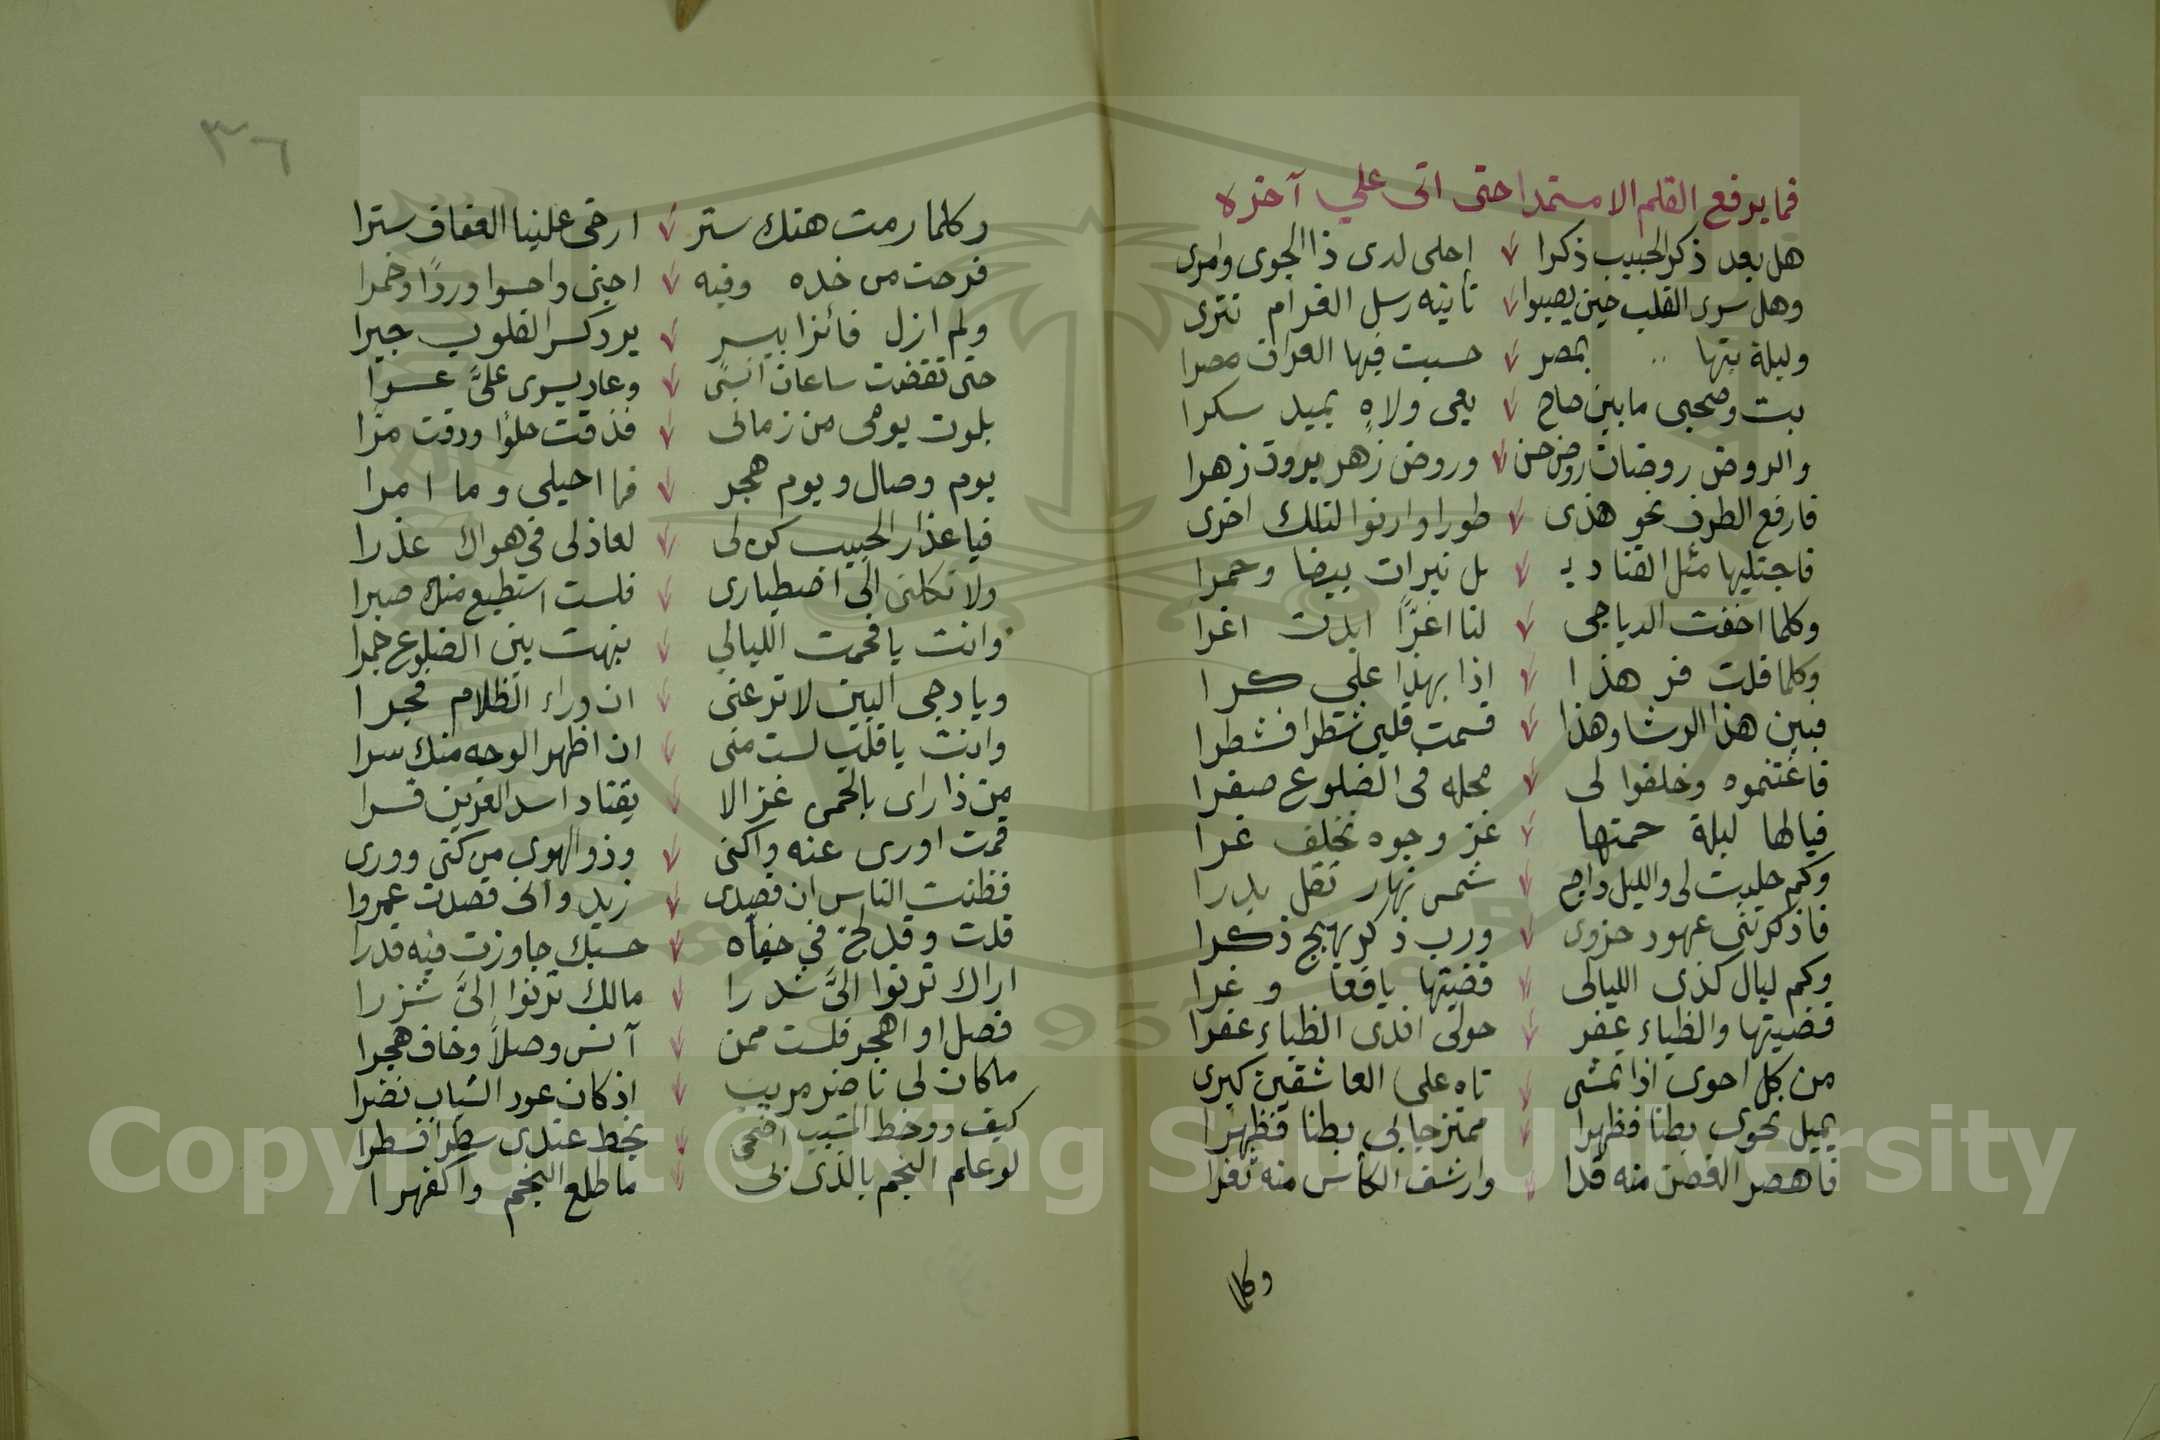 فما يرفع القلم الا مستمدا حتى اتى علي آخره
هل بعد ذكر الحبيب ذكرا احلى لدى ذا الجوى وامرى
وهل سرى القلب حين يصبوا تأتيه رسل الغرام تترى
وليلة بتها بمصر حسبت فيها العراق مصرا
بت وصحبى ما بين صاح يعى ولاهٍ يميد سكرا
والروض روضان روض حسن وروض زهر يروق زهرا
فارفع الطرف نحو هذى طورا وارنوا لتلك اخرى
فاجتليها مثل القناديـ ـل نيرات بيضا وحمرا
وكلما اخفت الدياجى لنا اغرًّا ابدت اغرا
وكلما قلت فر هذا اذا بهذا علي كرا
فبين هذا الرشا وهذا قسمت قلبي شطرا فشطرا
فاغتنموه وخلفوا لى محله فى الضلوع صفرا
فيالها ليلة حمتها غر وجوه تخلف غرا
وكم جليت لى والليل داج شمس نهار تقل بدرا
فاذكرتنى عهود حزوى ورب ذكر يهيج ذكرا
وكم ليال كذى الليالى قضيتها يافعا وغرا
قضيتها والظباء عفر حولى افدى الظباء عفرا
من كل احوى اذا تمشى تاه على العاشقين كبرى
يميل نحوى بطنا فظهرا ممتزجا بى بطنا فظهرا
فاهصر الغصن منه قدا وارشف الكأس منه ثغرا
وكلما
٣٦
وكلما رمت هتك ستر ارخى علينا العفاف سترا
فرحت من خده وفيه اجنى واحسوا وردًا وخمرا
ولم ازل فائزا بيسر يرد كسر القلوب جبرا
حتى تقضت ساعات انسى وعاد يسرى علىَّ عسرا
بلوت يومى من زمانى فذقت حلوًا وذقت مرًّا
يوم وصال ويوم هجر فما احيلى وما امرا
فيا عذار الحبيب كن لى لعاذلى فى هواك عذرا
ولا تكلنى الى اصطبارى فلست استطيع منك صبرا
وانت يا فحمت الليالي بنهت بين الضلوع جمرا
ويا دجى البين لا ترعنى ان وراء الظلام فجرا
وانت يا قلب لست منى ان اظهر الوجه منك سرا
من ذا راى بالحمى غزالا يقتاد اسد العرين قسرا
قمت اورى عنه واكنى وذو الهوى من كنى وورى
فظنت الناس ان قصدى زيد وانى قصدت عمروا
قلت وقد لج في جفاه حسبك جاوزت فيه قدرا
اراك ترنوا الىَّ شدرا مالك ترنوا الىَّ شزرا
فصل او اهجر فلست ممن آنس وصلاً وخاف هجرا
ما كان لى ناضر مريب اذ كان عود الشباب نضرا
كيف ووخط الشيب اضحى يخط عندى سطرا فسطرا
لو علم النجم بالذى بى ما طلع النجم واكفهرا